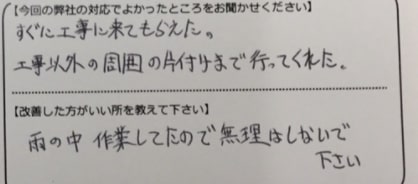 【今回の弊社の対応でよかったところをお聞かせください】
すぐに工事に来てもらえた。
工事以外の周囲の片付けまで行ってくれた。
【改善した方がいい所を教えて下さい】
雨の中作業してたので無理はしないで
下さい